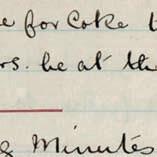 for Coke
be at the
Minutes